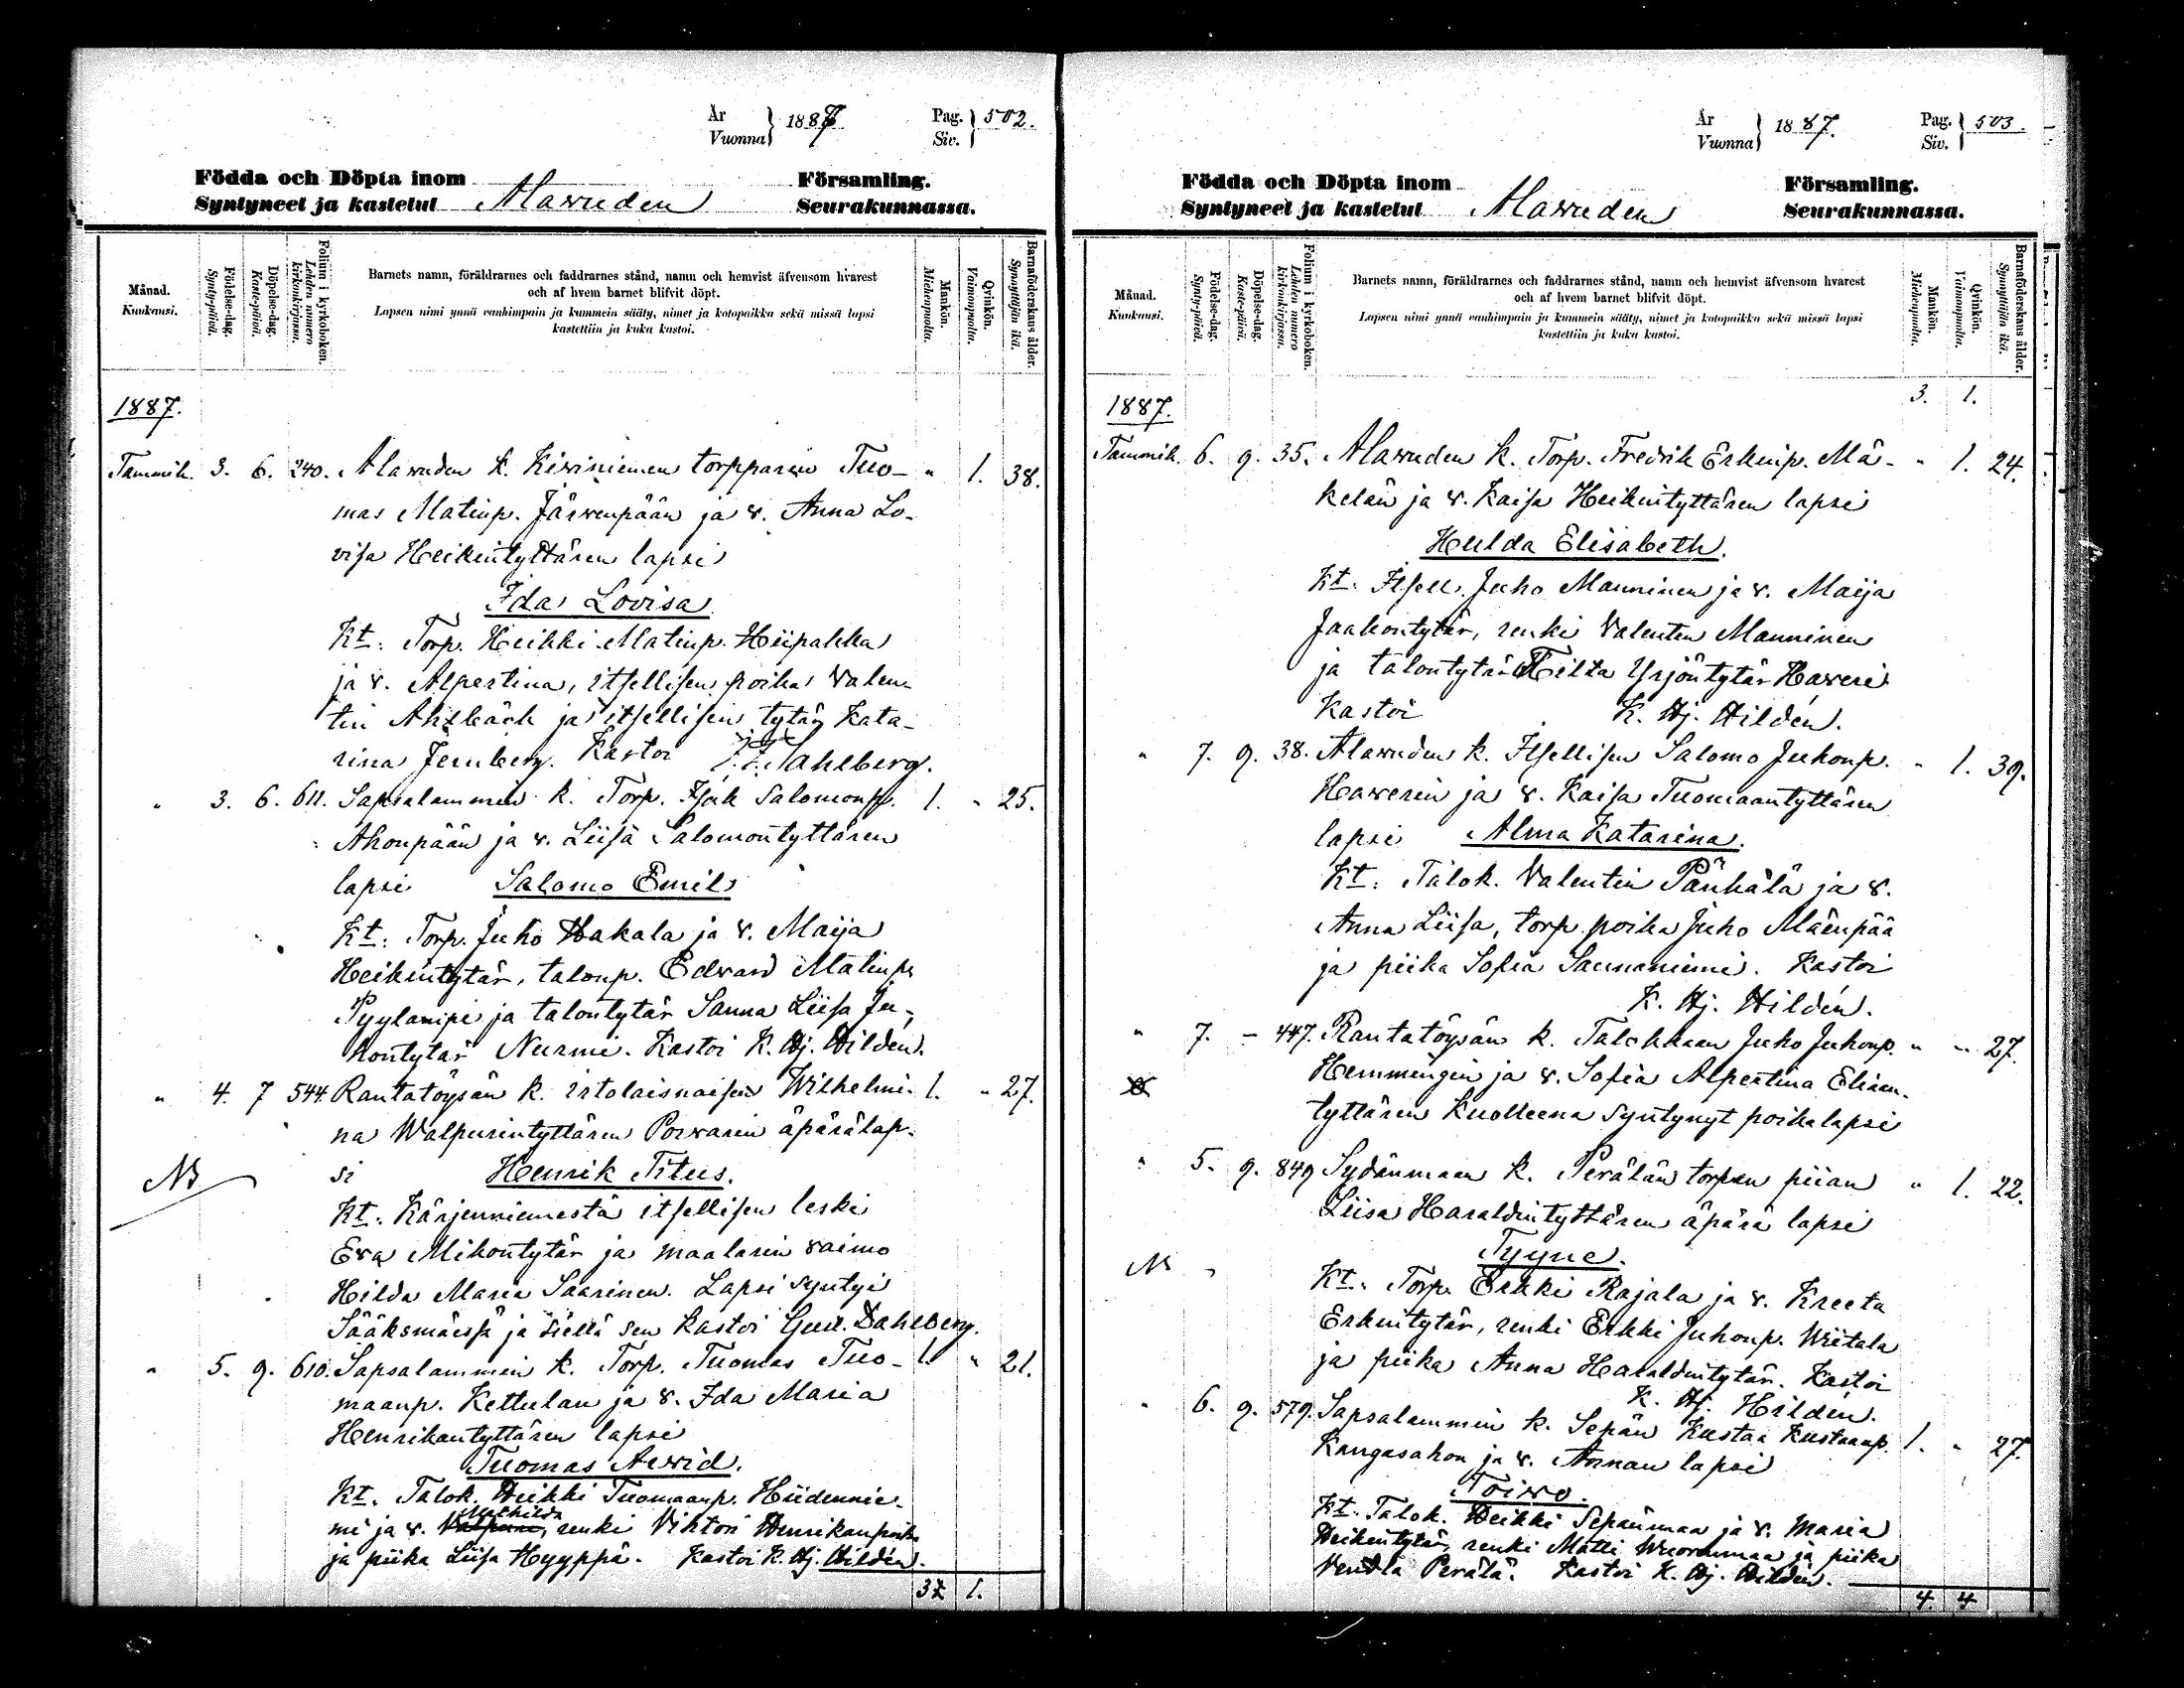 År
Vuonna
1887
Pag.
Siv.
502.
Födda och Döpta inom
Syntyneet ja kastetut
Alavuden
Församling.
Seurakunnassa.
Månad.
Kuukausi.
Födelse-dag.
Synty-päivä.
Döpelse-dag.
Kaste-päivä.
Folium i kyrkoboken.
Lehden numero
kirkonkirjassa.
Barnets namn, föräldrarnes och faddrarnes stånd, namn och hemvist äfvensom hvarest
och af hvem barnet blifvit döpt.
Lapsen nimi ynnä vanhimpain ja kummein sääty, nimet ja kotopaikka sekä missä lapsi
kastettiin ja kuka kastoi.
Mankön.
Miehenpuolta.
Qvinkön.
Vaimonpuolta.
Barnaföderskans ålder.
Synnyttäjän ikä.
1887.
Tammik. 3. 6. 240. Alavuden k. Kiviniemen torpparin Tuo- " 1. 38.
mas Matinp. Järvenpään ja v. Anna Lo-
visa Heikintyttären lapsi
Ida Lovisa
Kt: Torp. Heikki Matinp. Hiipakka
ja v. Alpertina, itsellisen poika Valen-
tin Ahlbäck ja itsellisen tytär Kata-
rina Jernberg. Kastoi Dahlberg.
" 3. 6. 611. Sapsalammin k. Torp. Isak Salomonp. 1. " 25.
Ahonpään ja v. Liisa Salomontyttären
lapsi Salomo Emil
Kt: Torp. Juho Hakala ja v. Maija
Heikintytär, talonp. Edvard Matinp.
Pyylampi ja talontytär Sanna Liisa Ju-
hontytär Nurmi. Kastoi K. Hj. Hildén.
" 4. 7 544. Rantatöysän k. irtolaisnaisen Wilhelmi- 1. " 27.
na Walpurintyttären Porvarin äpärälap-
si Henrik Titus.
NB
Kt: Kärjenniemestä itsellisen leski
Eva Mikontytär ja maalarin vaimo
Hilda Maria Saarinen. Lapsi syntyi
Sääksmäessä ja siellä sen kastoi Gust. Dahlberg.
" 5. 9. 610. Sapsalammin k. Torp. Tuomas Tuo- 1. " 21.
maanp. Kettulan ja v. Ida Maria
Henrikantyttären lapsi
Tuomas Arvid.
Kt. Talok. Heikki Tuomaanp. Hiidennie-
Mathilda
mi ja v. Valpuri, renki Viktori Henrikanpoika
ja piika Liisa Hyyppä. Kastoi K. Hj. Hildén.
3 1.
År
Vuonna
1887.
Pag.
Siv.
503.
Födda och Döpta inom
Syntyneet ja kastetut
Alavuden
Församling.
Seurakunnassa.
Månad.
Kuukausi.
Födelse-dag.
Synty-päivä.
Döpelse-dag.
Kaste-päivä.
Folium i kyrkoboken.
Lehden numero
kirkonkirjassa.
Barnets namn, föräldrarnes och faddrarnes stånd, namn och hemvist äfvensom hvarest
och af hvem barnet blifvit döpt.
Lapsen nimi ynnä vanhimpain ja kummein sääty, nimet ja kotopaikka sekä missä lapsi
kastettiin ja kuka kastoi.
Mankön.
Miehenpuolta.
Qvinkön.
Vaimonpuolta.
Barnaföderskans ålder.
Synnyttäjän ikä.
3. 1.
1887.
Tammik. 6. 9. 35. Alavuden k. Torp. Fredrik Erkinp. Mä- " 1. 24.
kelän ja v. Kaisa Heikintyttären lapsi
Hulda Elisabeth.
Kt: Itsell. Juho Manninen ja v. Maija
Jaakontytär, renki Valenten Manninen
ja talontytär Hilta Yrjöntytär Haveri
Kastoi K. Hj. Hildén.
" 7. 9. 38. Alavuden k. Itsellisen Salomo Juhonp. " 1. 39.
Haverin ja v. Kaisa Tuomaantyttären
lapsi Alma Katarina.
Kt: Talok. Valentin Pänkälä ja v.
Anna Liisa, torp. poika Juho Mäenpää
ja piika Sofia Saunaniemi. Kastoi
K. Hj. Hildén.
" 7. – 447. Rantatöysän k. Talokkaan Juho Juhonp. " – 27.
Hemmingin ja v. Sofia Alpertina Elian-
tyttären kuolleena syntynyt poikalapsi
" 5. 9. 849 Sydänmaan k. Perälän torpan piian " 1. 22.
Liisa Haraldintyttären äpärä lapsi
Tyyne.
Kt: Torp. Erkki Rajala ja v. Kreeta
Erkintytär, renki Erkki Juhonp. Wiitala
ja piika Anna Haraldintytär. Kastoi
K. Hj. Hildén.
" 6. 9. 579. Sapsalammin k. Sepän Kustaa Kustaanp. 1. " 27.
Kangasahon ja v. Annan lapsi
Toivo.
Kt: Talok. Heikki Sepänmaa ja v. Maria
Heikintytär, renki Matti Wuorenmaa ja piika
Vendla Perälä. Kastoi K. Hj. Hildén.
4. 4